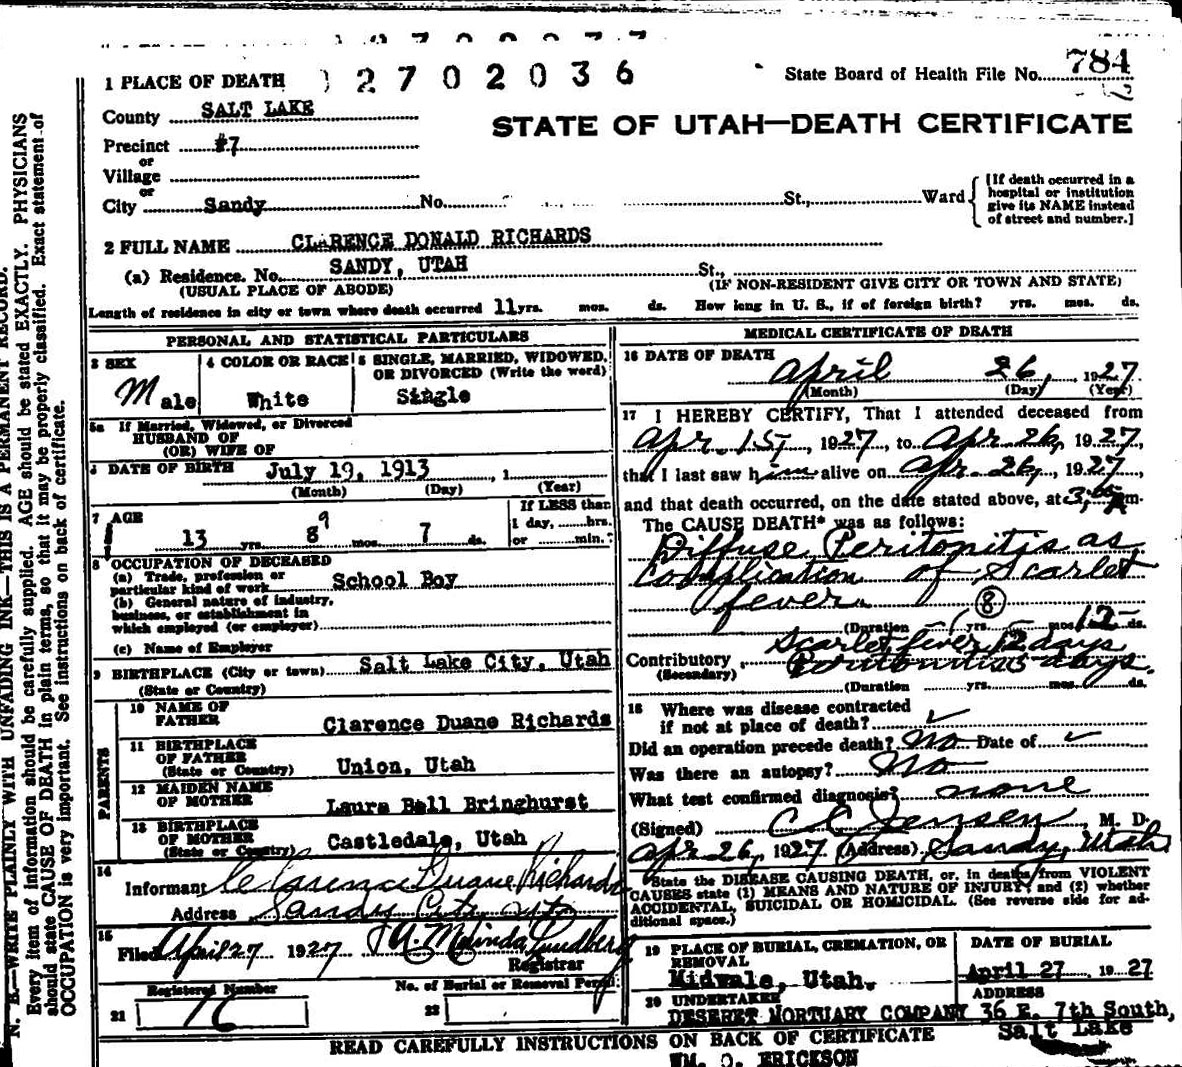 1 PLACE OF DEATH 2 7 0 2 0 3 6
State Board of Health File No. 784
County SALT LAKE
STATE OF UTAH—DEATH CERTIFICATE
Precinct #7
or
Village
or
City Sandy No. St., Ward
[If death occurred in a hospital or institution give its NAME instead of street and number.]
2 FULL NAME CLARENCE DONALD RICHARDS
(a) Residence. No. SANDY, UTAH St.,
(USUAL PLACE OF ABODE) (IF NON-RESIDENT GIVE CITY OR TOWN AND STATE)
Length of residence in city or town where death occurred 11 yrs. mos. ds. How long in U. S., if of foreign birth? yrs. mos. ds.
PERSONAL AND STATISTICAL PARTICULARS
3 SEX
Male
4 COLOR OR RACE
White
5 SINGLE, MARRIED, WIDOWED,
OR DIVORCED (Write the word)
Single
5a If Married, Widowed, or Divorced
HUSBAND OF
(OR) WIFE OF
DATE OF BIRTH July 19, 1913, 1
(Month) (Day) (Year)
7 AGE
13 yrs. 8 9 mos. 7 ds.
If LESS than
1 day, hrs.
or min.
8 OCCUPATION OF DECEASED
(a) Trade, profession or
particular kind of work School Boy
(b) General nature of industry,
business, or establishment in
which employed (or employer)
(c) Name of Employer
9 BIRTHPLACE (City or town) Salt Lake City, Utah
(State or Country)
PARENTS
10 NAME OF
FATHER Clarence Duane Richards
11 BIRTHPLACE
OF FATHER
(State or Country) Union, Utah
12 MAIDEN NAME
OF MOTHER Laura Bell Bringhurst
13 BIRTHPLACE
OF MOTHER
(State or Country) Castledale, Utah
14
Informant Clarence Duane Richards
Address Sandy City
15
Filed April 27 1927 Malinda Lundberg
Registrar
Registered Number
21 76
No. of Burial or Removal Permit
22
MEDICAL CERTIFICATE OF DEATH
16 DATE OF DEATH
April 26, 1927
(Month) (Day) (Year)
17 I HEREBY CERTIFY, That I attended deceased from
Apr. 15, 1927, to Apr 26, 1927,
that I last saw him alive on Apr. 26, 1927,
and that death occurred, on the date stated above, at 3, m.
The CAUSE DEATH* was as follows:
Diffuse Peritonitis as
complication of Scarlet
fever. 8
(Duration yrs. mos. 12 ds.
Scarlet fever 12 days
Contributory Peritonitis 3 days.
(Secondary)
(Duration yrs. mos. ds.
18 Where was disease contracted
if not at place of death?
Did an operation precede death? No Date of
Was there an autopsy? No
What test confirmed diagnosis? none
(Signed) C C Jensen, M. D.
Apr 26, 1927 (Address) Sandy, Utah
*State the DISEASE CAUSING DEATH, or, in deaths from VIOLENT
CAUSES state (1) MEANS AND NATURE OF INJURY; and (2) whether
ACCIDENTAL, SUICIDAL OR HOMICIDAL. (See reverse side for ad-
ditional space.)
19 PLACE OF BURIAL, CREMATION, OR
REMOVAL
Midvale, Utah.
DATE OF BURIAL
April 27 1927
20 UNDERTAKER
DESERET MORTUARY COMPANY
ADDRESS
36 E. 7th South,
Salt Lake
READ CAREFULLY INSTRUCTIONS ON BACK OF CERTIFICATE
WM. O. ERICKSON
N. B.—WRITE PLAINLY WITH UNFADING INK—THIS IS A PERMANENT RECORD.
Every item of information should be carefully supplied. AGE should be stated EXACTLY. PHYSICIANS
should state CAUSE OF DEATH in plain terms, so that it may be properly classified. Exact statement of
OCCUPATION is very important. See instructions on back of certificate.